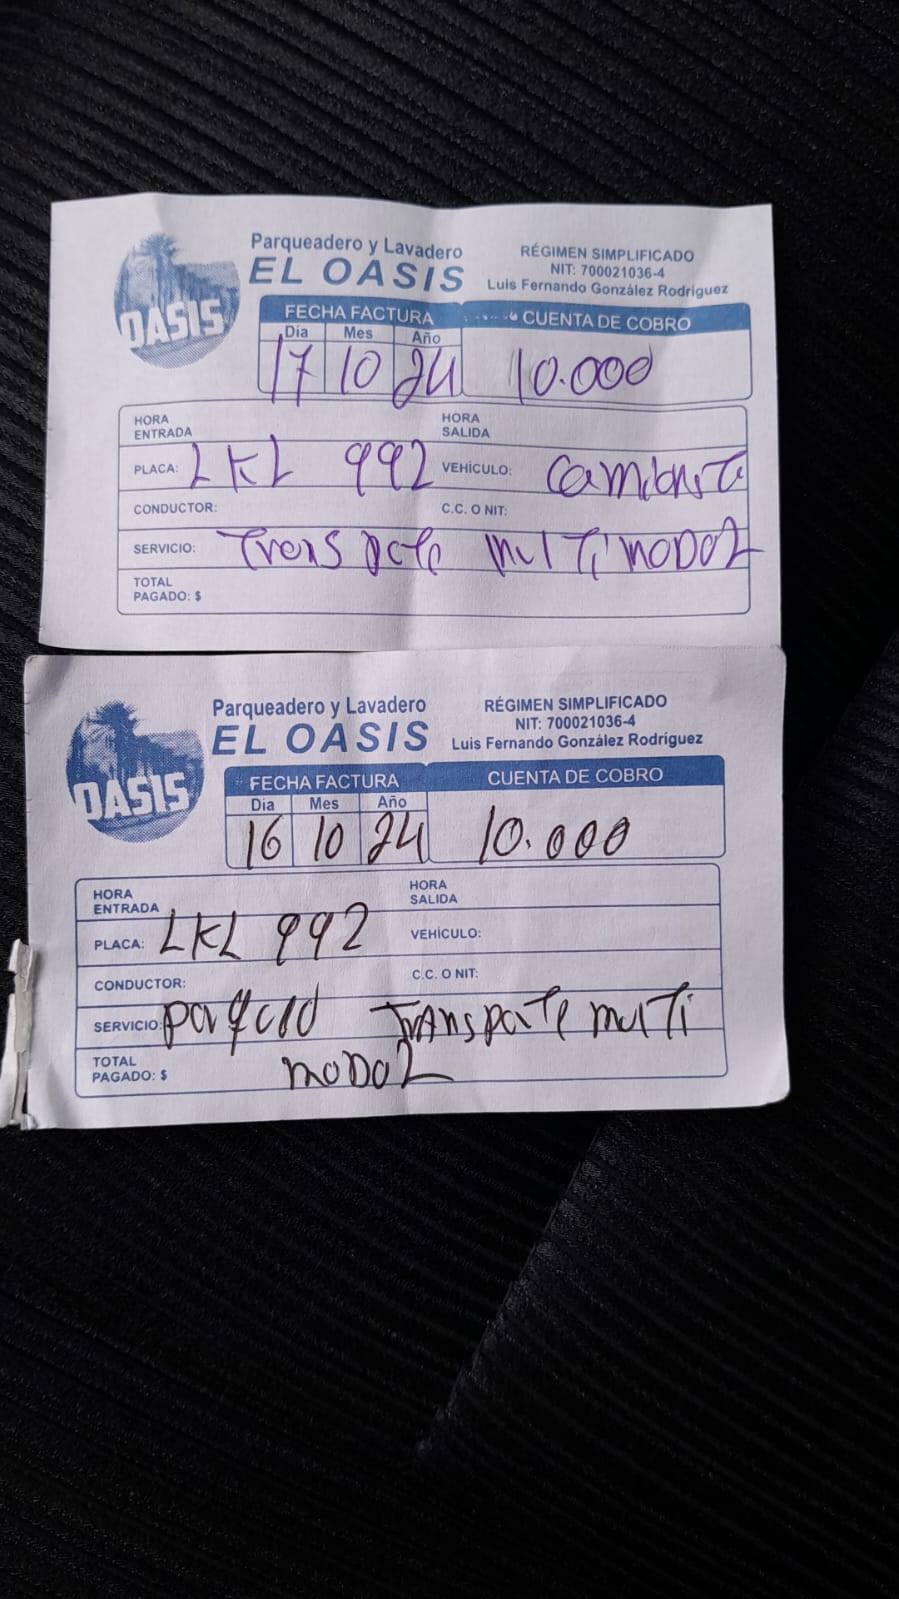 Parqueadero y Lavadero
EL OASIS
OASIS
RÉGIMEN SIMPLIFICADO
NIT: 700021036-4
Luis Fernando González Rodríguez
FECHA FACTURA
CUENTA DE COBRO
Dia Mes Año
17 10 24 10.000
HORA ENTRADA
HORA SALIDA
PLACA: LKL 992 VEHÍCULO: Camioneta
CONDUCTOR: C.C. O NIT:
SERVICIO: Transpote multimodal
TOTAL PAGADO: $
Parqueadero y Lavadero
EL OASIS
OASIS
RÉGIMEN SIMPLIFICADO
NIT: 700021036-4
Luis Fernando González Rodríguez
FECHA FACTURA
CUENTA DE COBRO
Dia Mes Año
16 10 24 10.000
HORA ENTRADA
HORA SALIDA
PLACA: LKL 992 VEHÍCULO:
CONDUCTOR: C.C. O NIT:
SERVICIO: Transpote multi
modal
TOTAL PAGADO: $